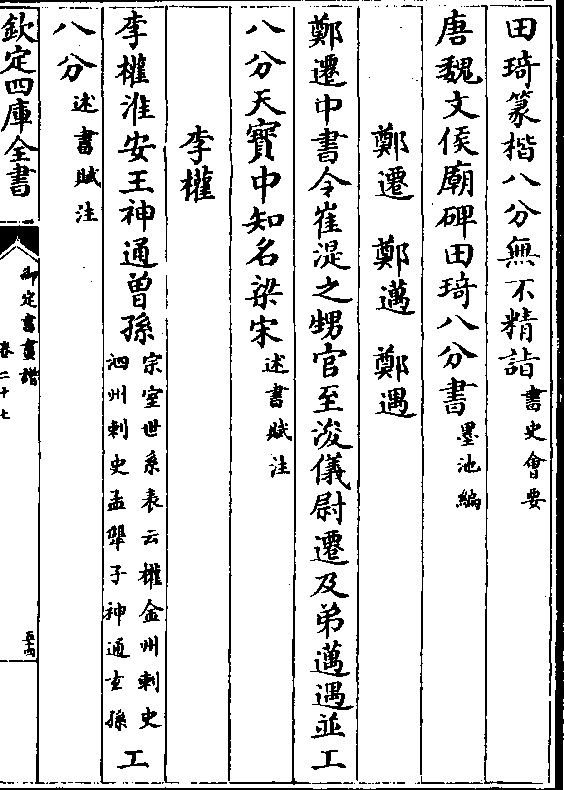 田琦篆楷八分無不精詣書史會要
唐魏文侯廟碑田琦八分書墨池編
鄭遷　鄭邁　鄭遇
鄭遷中書令崔湜之甥官至浚儀尉遷及弟邁遇並工
八分天寶中知名梁宋述書賦注
李權
李權淮安王神通曾孫宗室世系表云權金州刺史泗州刺史孟犨子神通玄孫工
八分述書賦注
欽定四庫全書
御定書畫譜
卷二十七